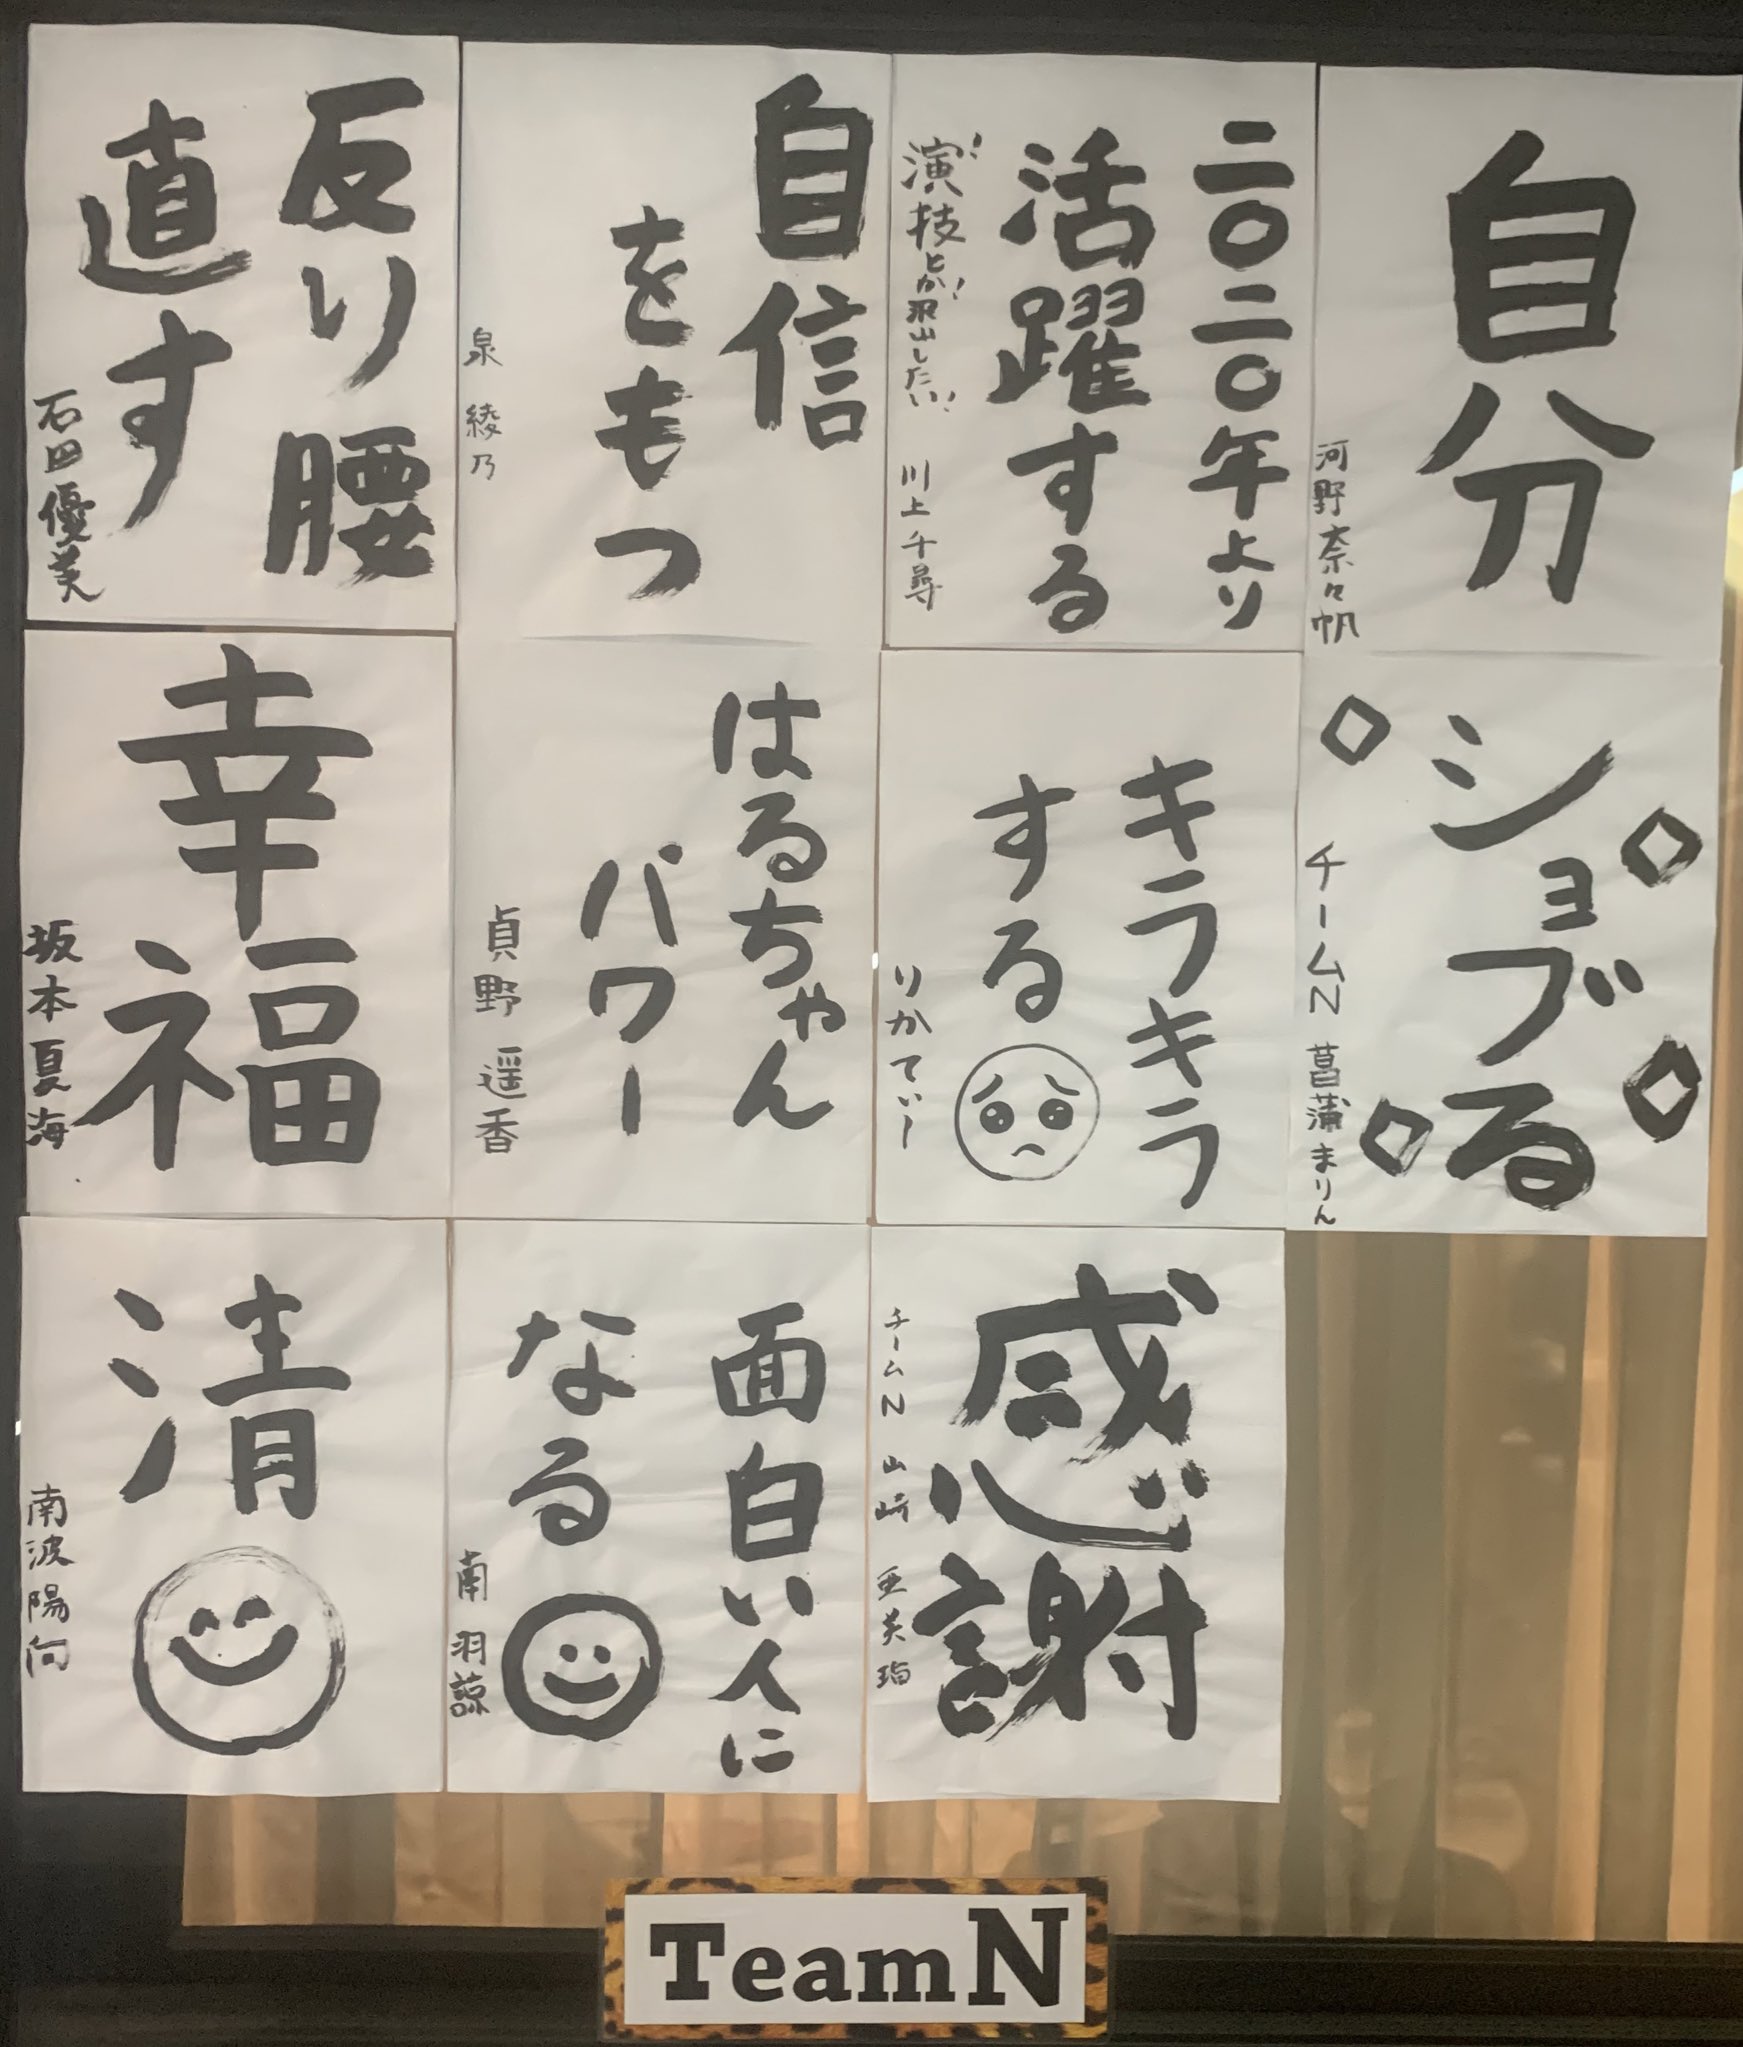 反り腰
直す
石田優美
自信
をもつ
泉 綾乃
二〇二〇年より
活躍する
演技とか沢山したい!
川上千尋
自分
河野奈々帆
幸福
坂本夏海
はるちゃん
パワー
貞野 遥香
キラキラ
する
りかてぃー
ショブる
チームN 菖蒲まりん
清
南波陽向
面白い人に
なる
南 羽諒
感謝
チームN 山崎 亜美瑠
TeamN